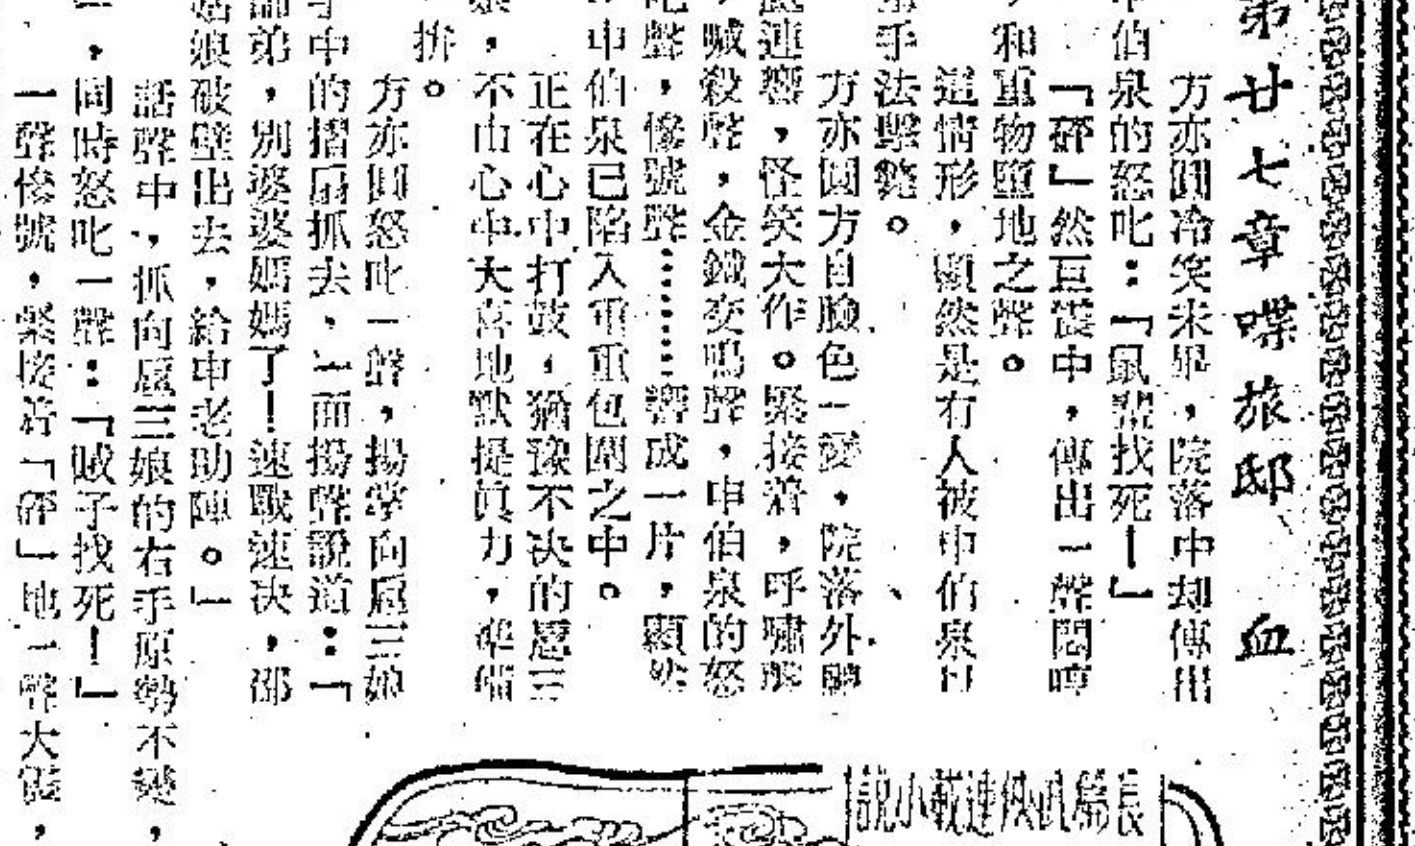 第廿七章 喋旅邸 血
方亦圓冷笑未畢，院落中却傳出
申伯泉的怒叱：「鼠輩找死！」
「砰」然巨震中，傳出一聲悶哼
，和重物墮地之聲。
這情形，顯然是有人被申伯泉以
手法擊斃。
方亦圓方自臉色一變，院落外
連響，怪笑大作。緊接着，呼嘯聲
，喊殺聲，金鐵交鳴聲，申伯泉的怒
叱聲，慘號聲……響成一片，顯然
，申伯泉已陷入重重包圍之中。
正在心中打鼓，猶豫不决的扈三
娘，不由心中大喜地默提眞力，準備
一拚。
方亦圓怒叱一聲，揚掌向扈三娘
手中的摺扇抓去，一面揚聲說道：「
弟，別婆婆媽媽了！速戰速决，邵
姑娘破壁出去，給申老助陣。」
話聲中，抓向扈三娘的右手原勢不變，
，同時怒叱一聲：「賊子找死！」
一聲慘號，緊接着「砰」地一聲大震，
長篇武俠連載小說